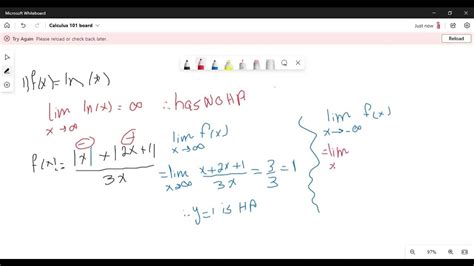 Microsoft Whiteboard
Calculus 101 board
Just now
Try Again Please reload or check back later.
Reload
1) f(x) = ln(x)
lim ln(x) = ∞ ∴ has No HA
x→∞
f(x) = |x| + |2x+1| / 3x
lim f(x)
x→∞
= lim x+2x+1 / 3x = 3/3 = 1
x→∞
∴ y=1 is HA
lim f(x)
x→-∞
= lim
x
97%